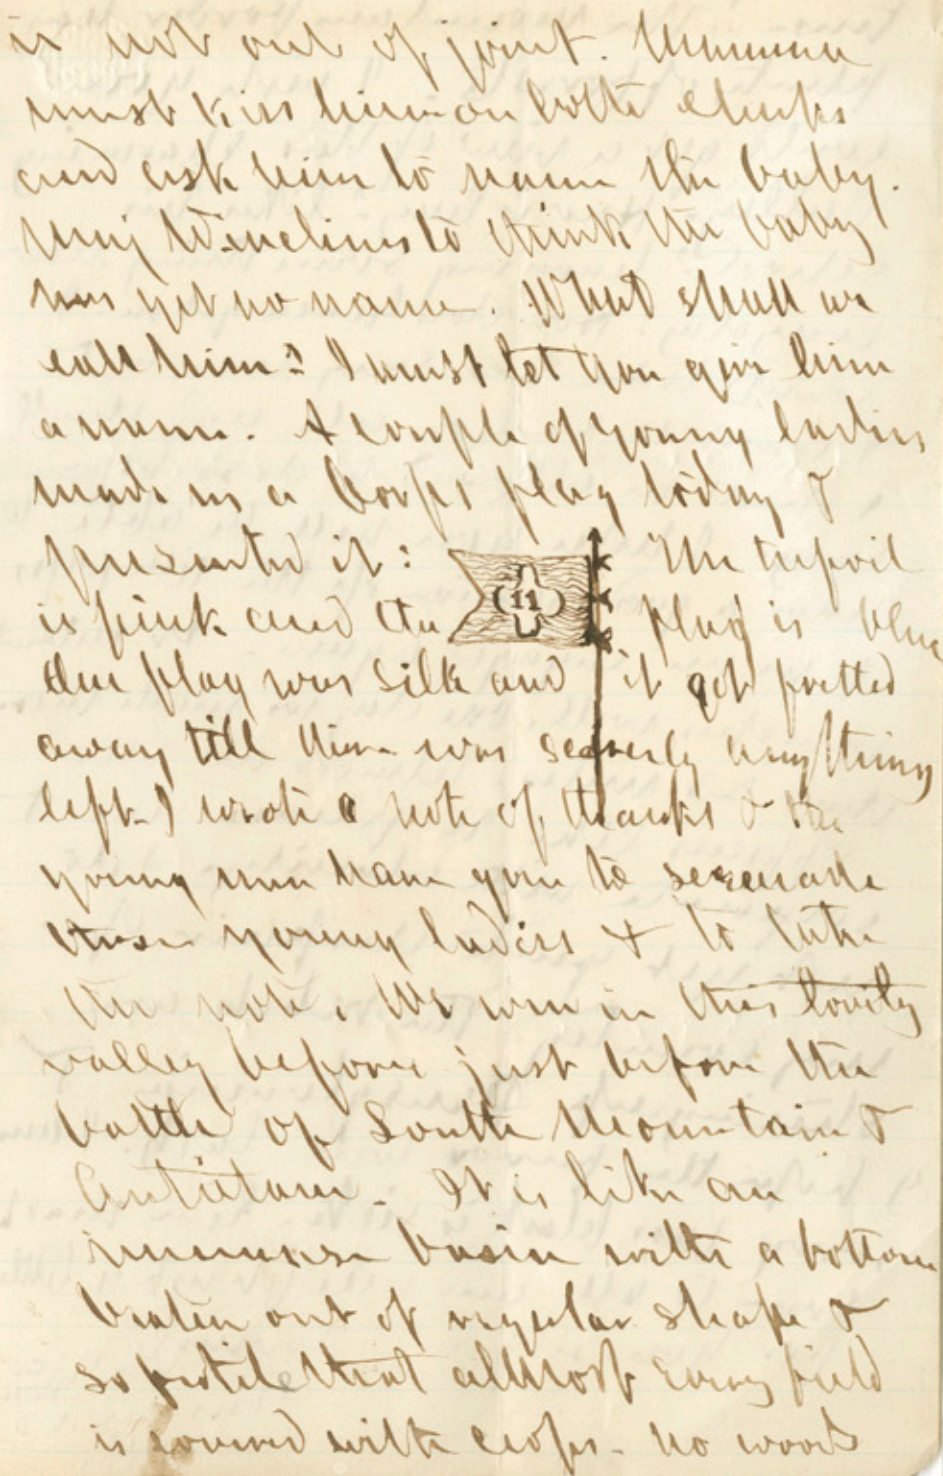 is not out of joint. Mamma
must kiss him on both cheeks
and ask him to name the baby.
Maj to think the baby
has yet no name. What shall we
call him? I must let you give him
a name. A couple of young ladies
made us a Corps flag today &
presented it: The trefoil
11
is pink and the flag is blue
Our flag was silk and it got fretted
away till there was scarcely anything
left. I wrote a note of thanks & the
young men have gone to serenade
these young ladies & to take
the note. We were in this lovely
valley before just before the
battle of South Mountain &
Antietam. It is like an
immense basin with a bottom
beaten out of regular shape &
so fertile that allmost every field
is covered with crops. No woods